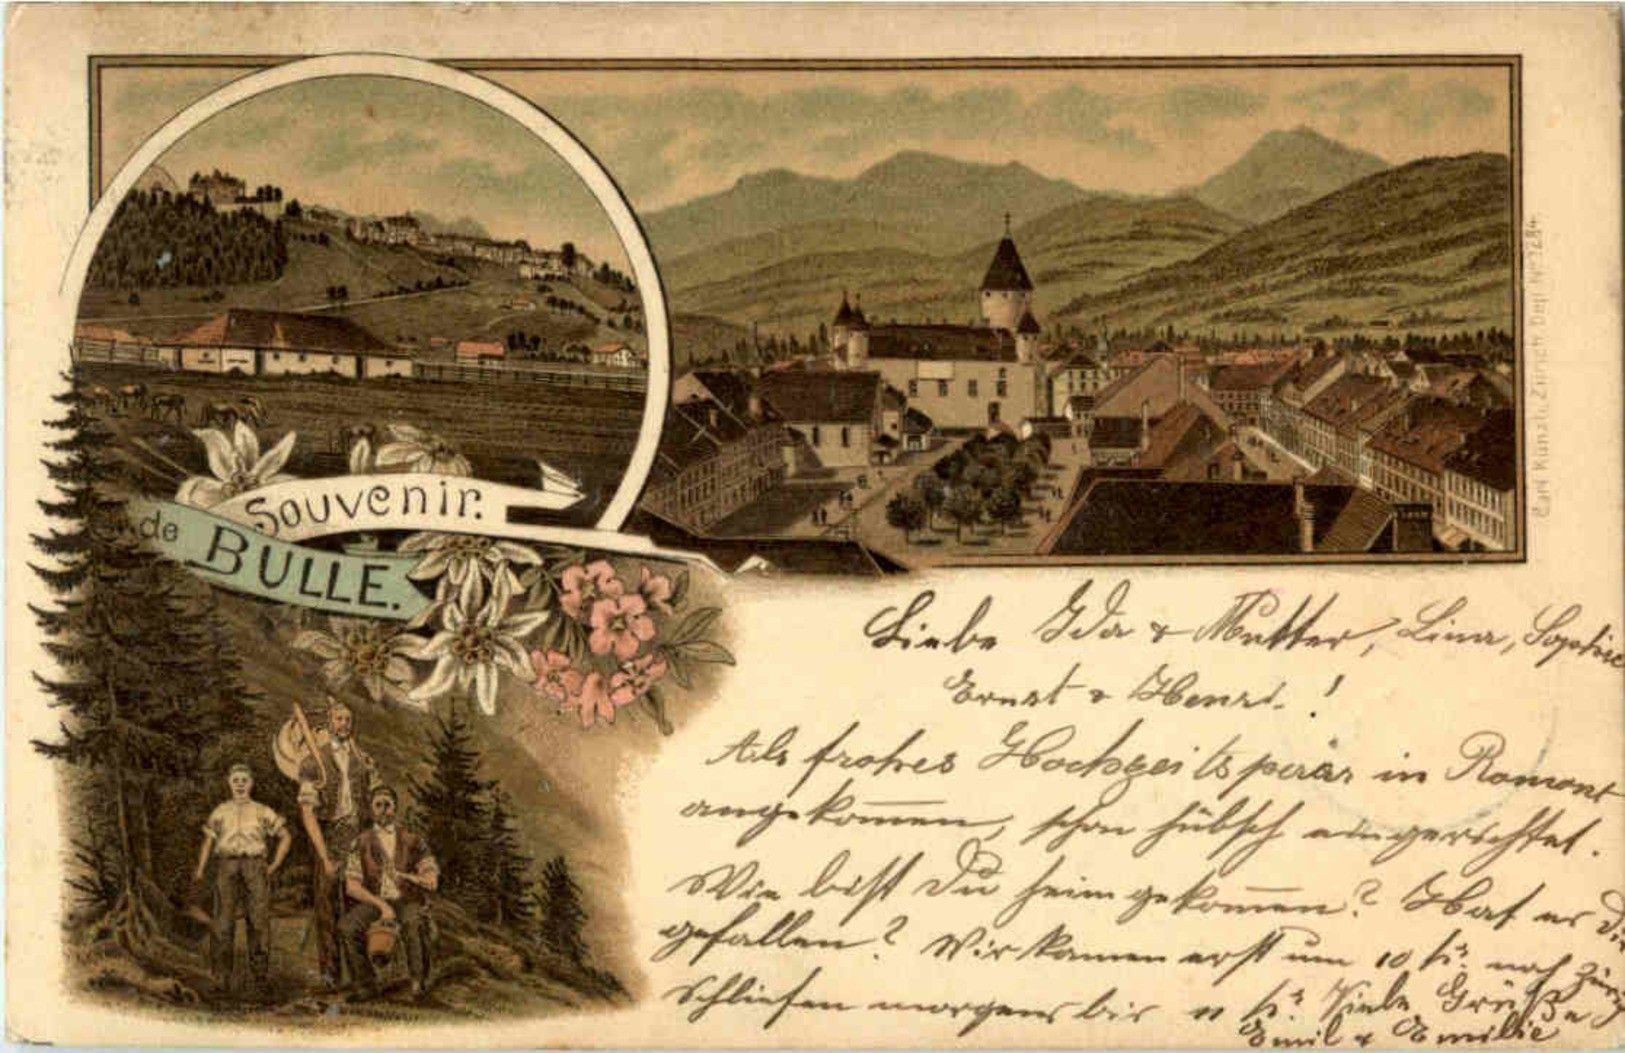 Souvenir.
de BULLE.
Carl Künzli, Zürich Dep. Nº 1284.
Liebe Ida & Mutter, Lina, Sophie
Ernst & Henri.!
Als frohes Hochzeitspaar in Romont
angekommen, schon hübsch eingerichtet.
Wie bist Du heimgekommen? Hat es Dir
gefallen? Wir kamen erst um 10 h. nach Zürich
schliefen morgens bis 11 h. Viele Grüße
Emil & Emilie